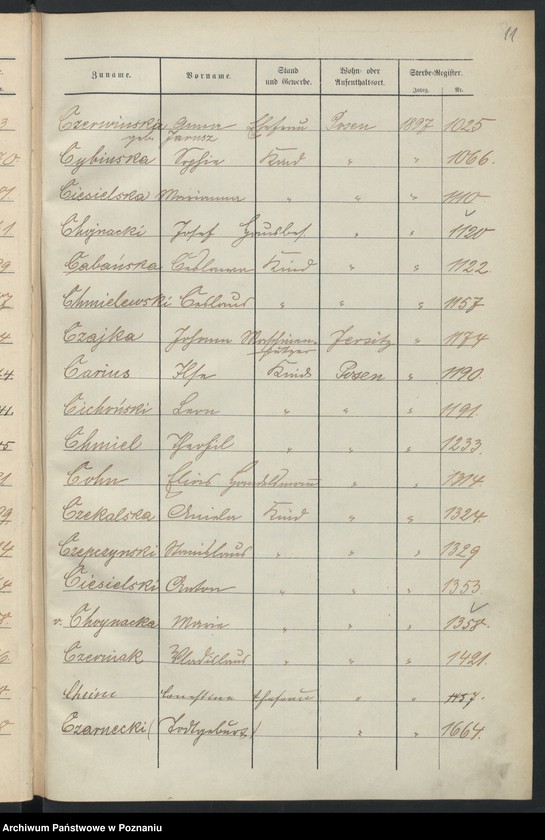 11
Zuname. Vorname. Stand und Gewerbe. Wohn- oder Aufenthaltsort. Sterbe-Register.
Jahrg. Nr.
Czerwinska Anna Ehefrau Posen 1897 1025
geb. Jarusz
Cybinska Sophie Kind " " 1066.
Ciesielska Marianna " " " 1110
Chojnacki Josef Hausbes. " " 1120
Cabańska Kind " " 1122
Chmielewski Ceslaus " " " 1157
Czajka Johann Maschinen- Jersitz " 1174
Carius Ilse Kind Posen " 1190.
Cichoński Leon " " " 1191.
Chmiel " " " 1233.
Cohn Handelsmann " " 1314.
Czekalska Aniela Kind " " 1324.
Czepczynski Stanislaus " " " 1329
Ciesielski Anton " " " 1353.
v. Chojnacka Marie " " " 1358.
Czerniak Wladislaus " " " 1421.
Ernestine Ehefrau " " 1457.
Czarnecki (Todtgeburt) " " 1664.
Archiwum Państwowe w Poznaniu